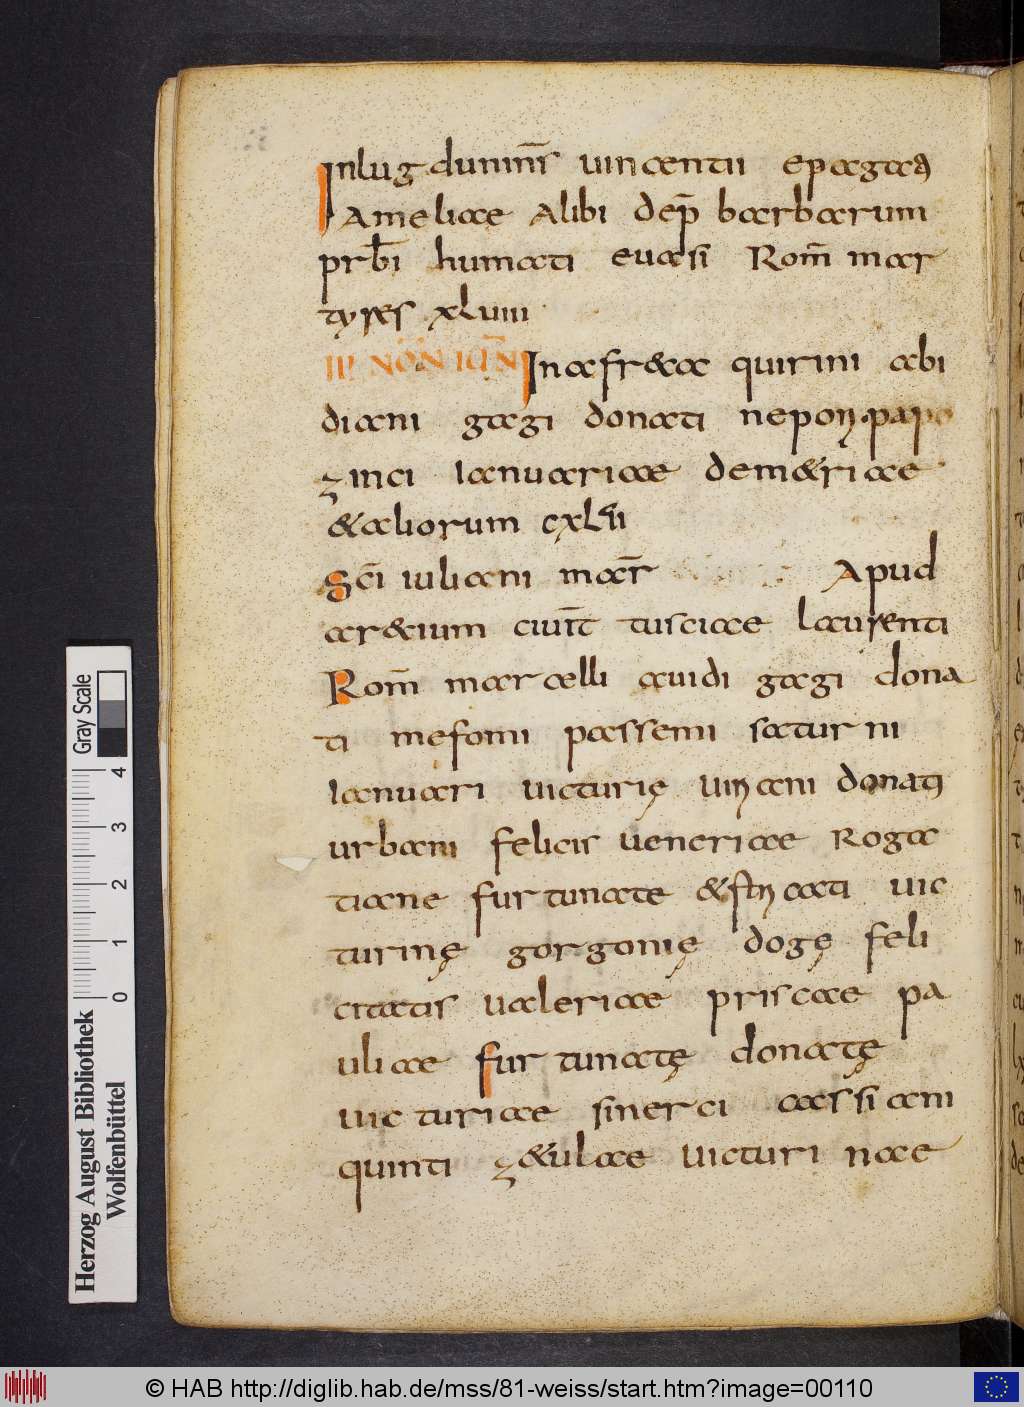 Inlugdunin̄s uincentii epagaꝗ
Ameliae Alibi dep̄ barbarum
prb̄i humati euasi Rom̄ mar
tyres xLuiii
III NON IUN̄ Inafr&a quirini abi
diani gagi donati nepon papo
zinci Ianuariae dem&riae
&aliorum cxLuii
Sc̄i iuliani mar̄ Apud
ar&ium ciuit̄ tusciae Laurenti
Rom̄ marcelli auidi gagi dona
ti mefomi passemi saturni
Ianuari uicturię uinani donati
urbani felicis ueneriae Roga
tiane furtunate &
uic
turinę gorgonię dogę feli
citatis ualeriae priscae pa
uliae furtunatę donatę
uicturiae sinerci cassiani
quinti z&ulae uicturi nae
Herzog August Bibliothek
Wolfenbüttel
Gray Scale
0 1 2 3 4
© HAB http://diglib.hab.de/mss/81-weiss/start.htm?image=00110